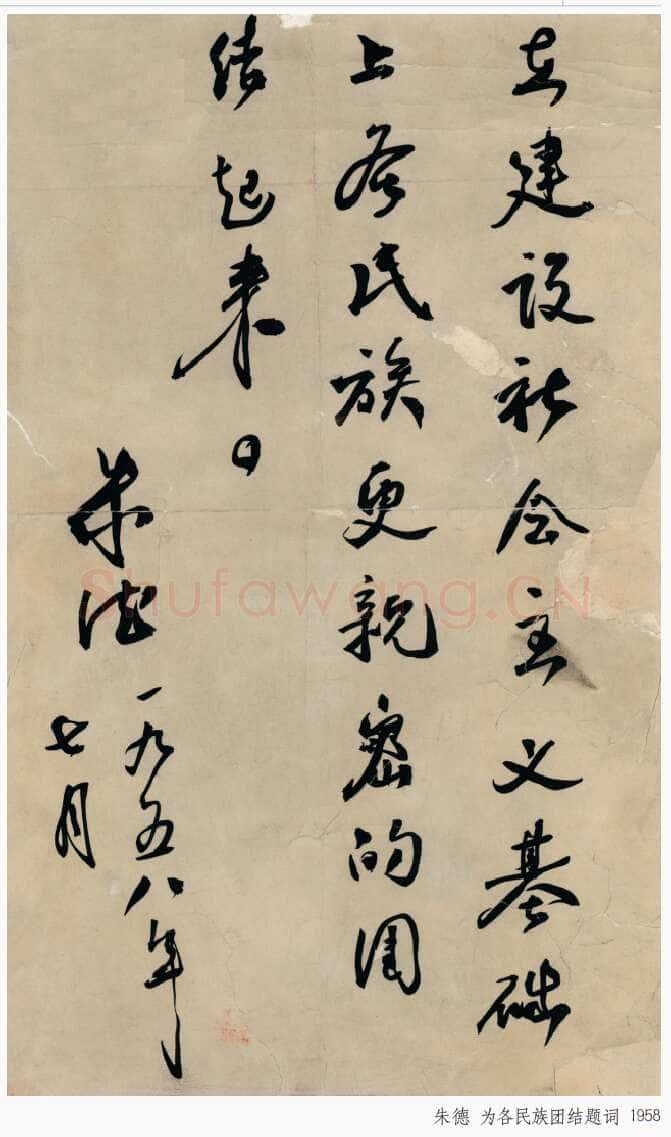 在建设社会主义基础
上各民族更亲密的团
结起来。
朱德一九五八年
七月
Shufawang.CN
朱德 为各民族团结题词 1958